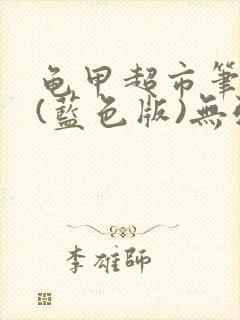 龟甲超市筆
(藍色版)無
李雄師